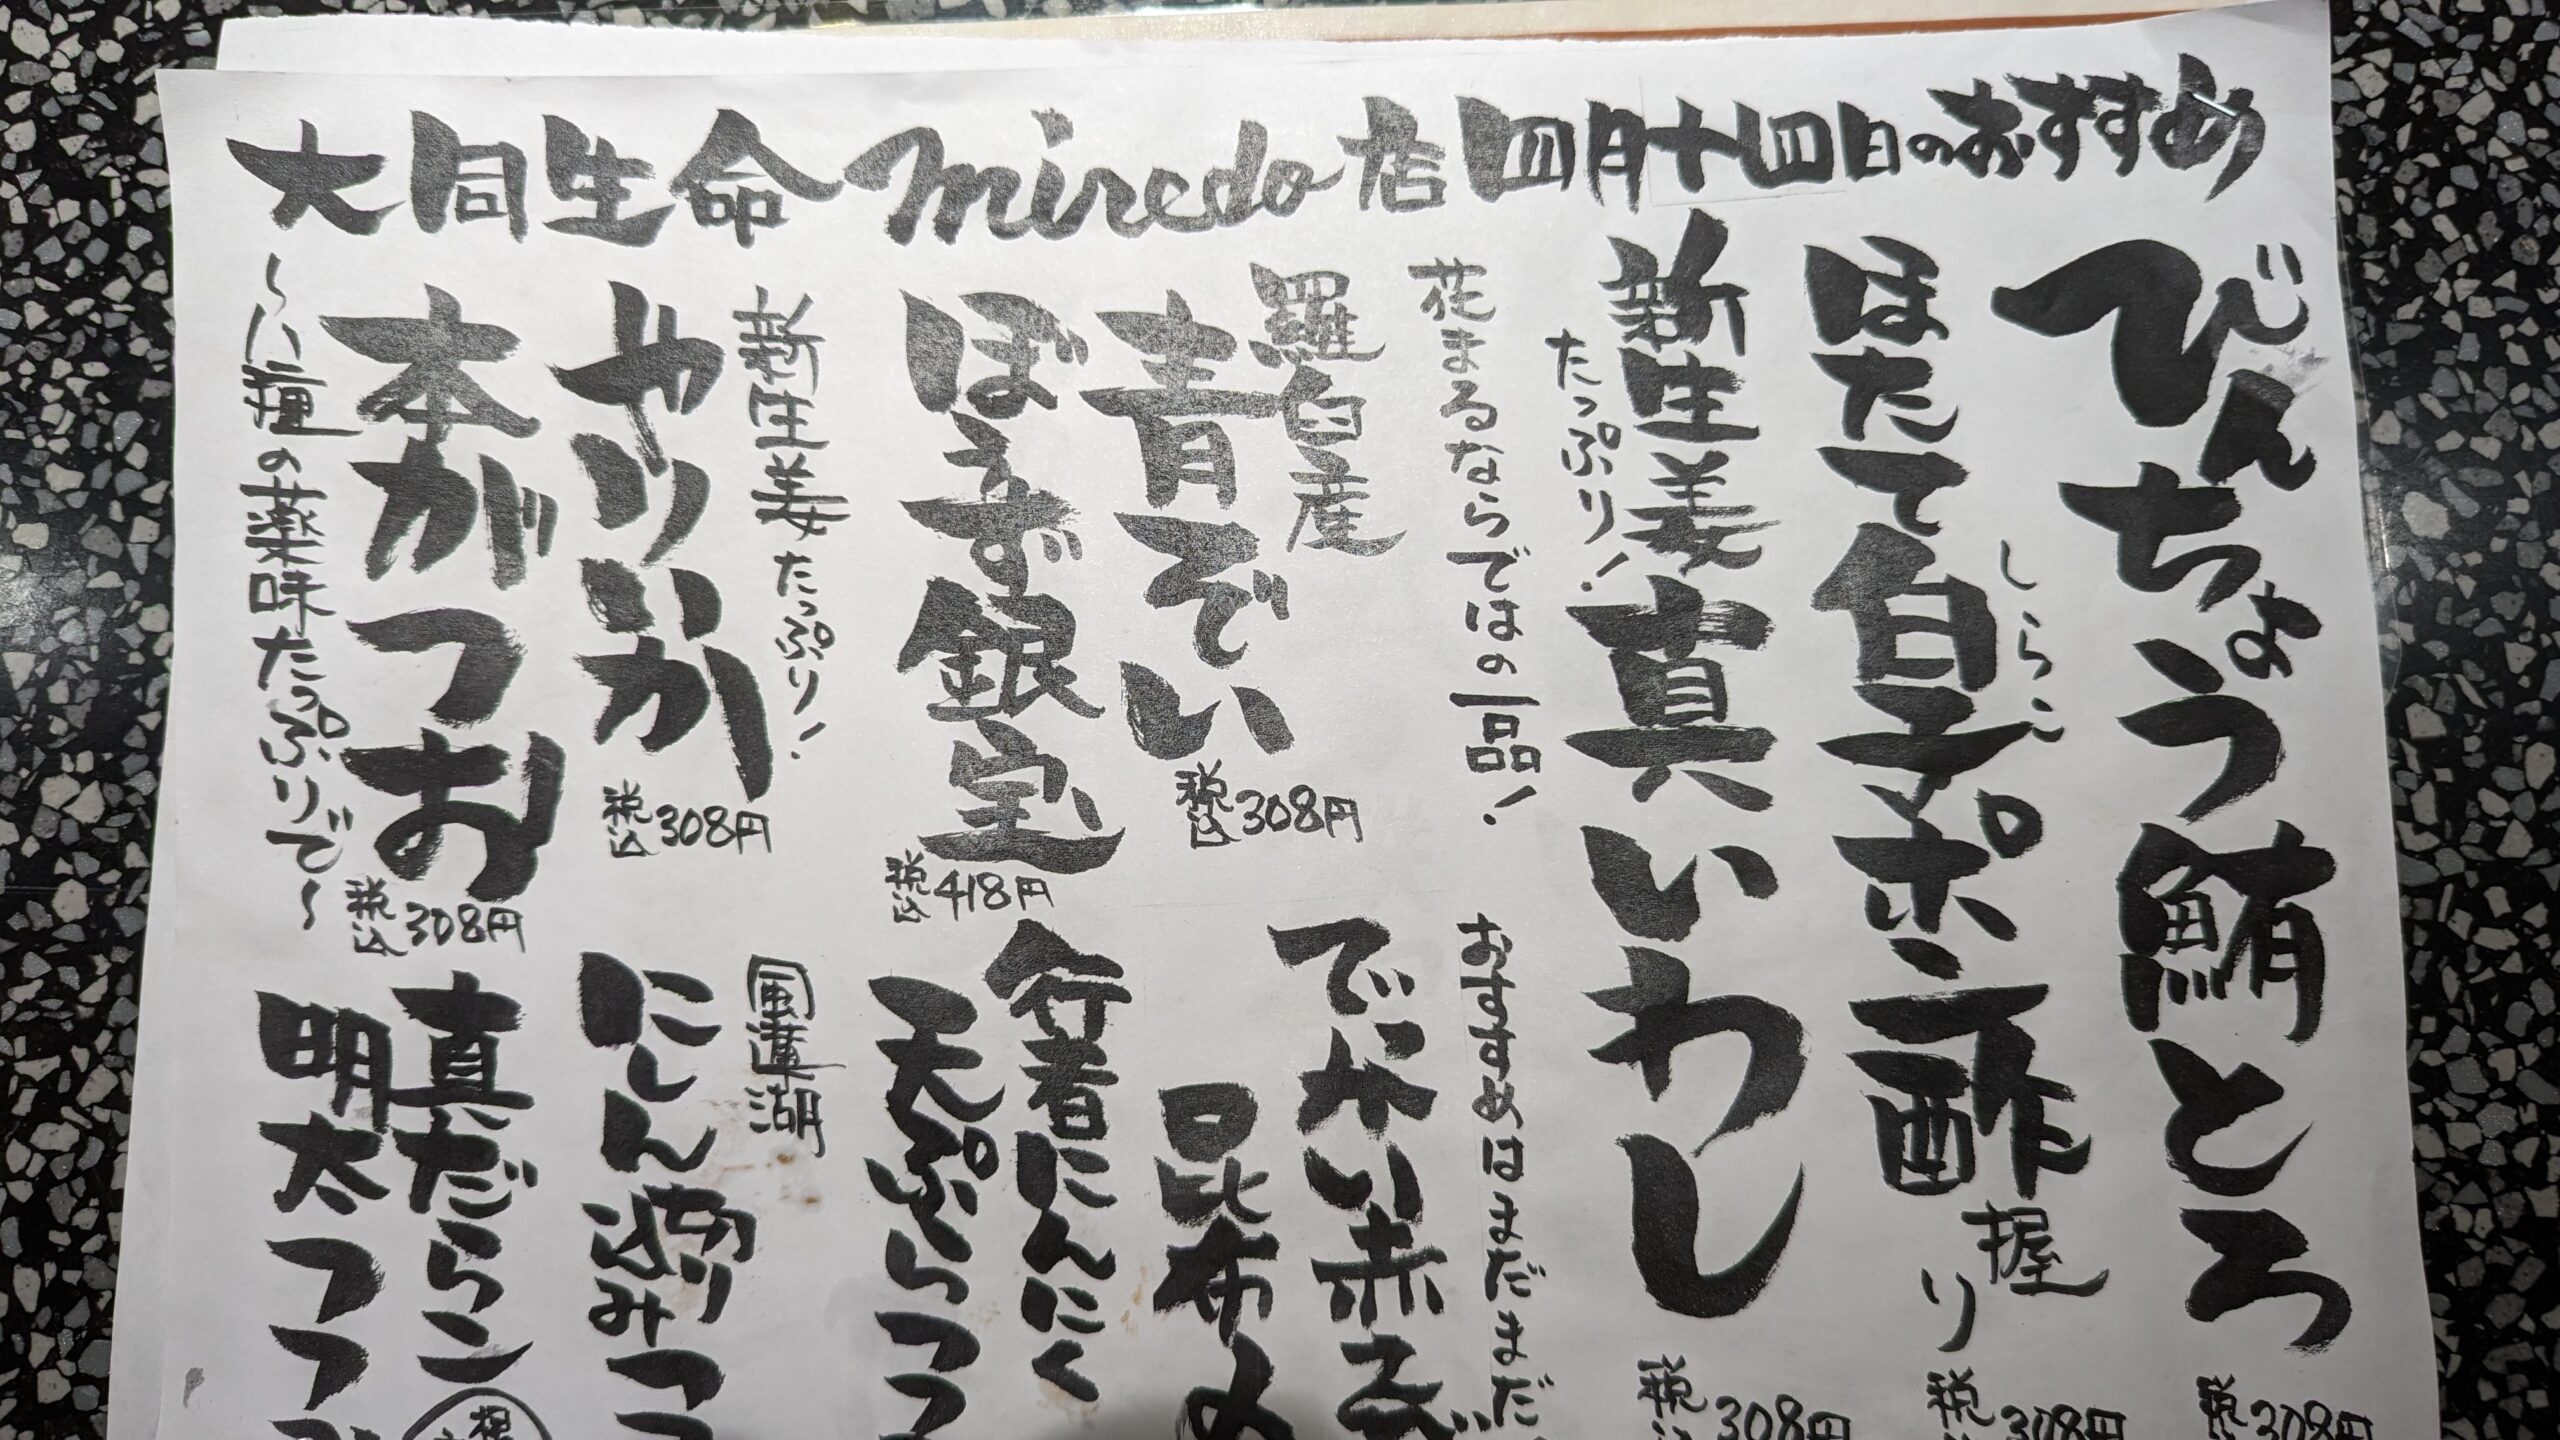 大同生命miredo店四月十四日のおすすめ
びんちょう鮪とろ
税込308円
ほたて白子ポン酢
しらこ
握り
税込308円
新生姜真いわし
たっぷり!
税込308円
花まるならではの一品!
羅臼産
青ぞい
税込308円
ぼうず銀宝
税込418円
新生姜たっぷり!
やりいか
税込308円
本がつお
税込308円
〜八種の薬味たっぷりで〜
おすすめはまだまだ
でっかい赤えび
昆布〆
行者にんにく
天ぷらつつ
風蓮湖
にしん切り込みつつ
真だらこ
明太つつ